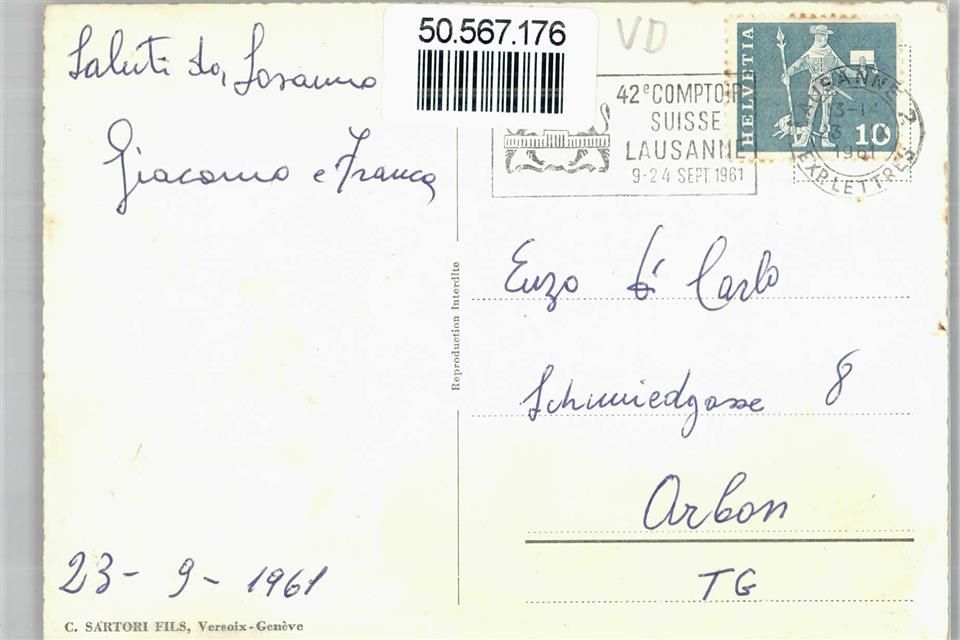 50.567.176
VD
Saluti da Losanna
Giacomo e Franca
42e COMPTOIR
SUISSE
LAUSANNE
9-24 SEPT. 1961
HELVETIA
10
LAUSANNE 2
13-14
23
1961
EXP. LETTRES
Reproduction Interdite
Enzo Di Carlo
Schmiedgasse 8
Arbon
TG
23-9-1961
C. SARTORI FILS, Versoix-Genève